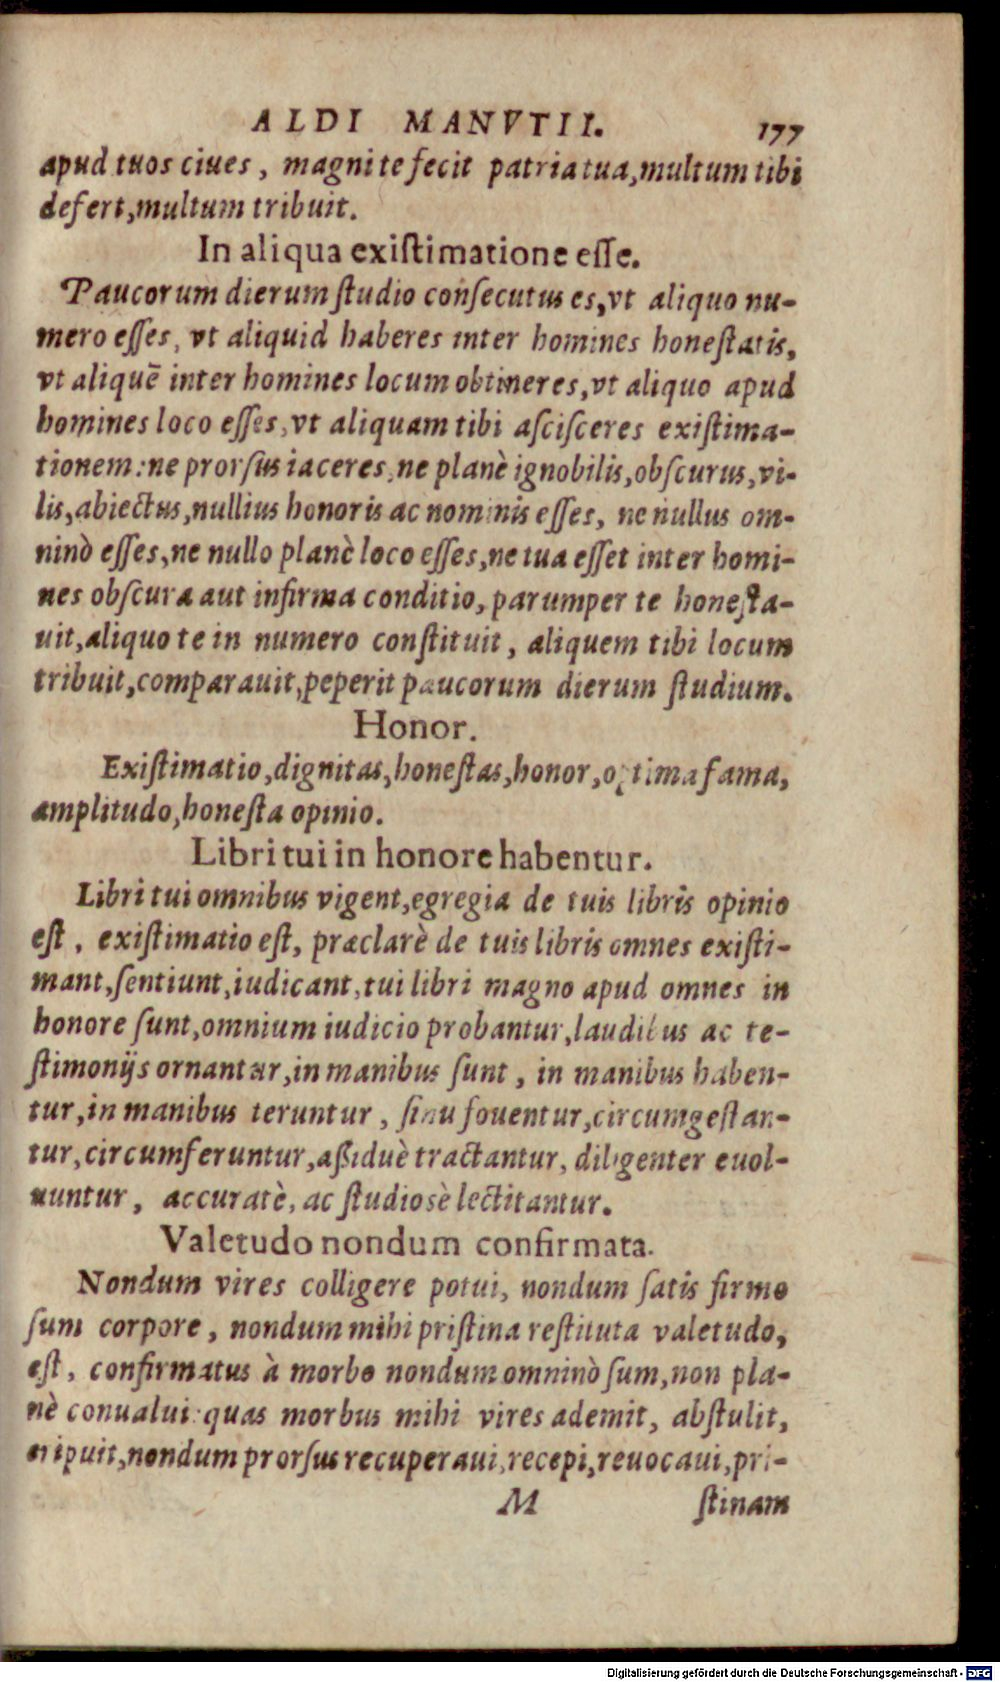 ALDI MANVTII. 177
apud tuos ciues, magni te fecit patria tua, multum tibi
defert, multum tribuit.
In aliqua exiſtimatione eſſe.
Paucorum dierum ſtudio conſecutus es, vt aliquo nu-
mero eſſes, vt aliquid haberes inter homines honeſtatis,
vt aliquē inter homines locum obtineres, vt aliquo apud
homines loco eſſes, vt aliquam tibi aſciſceres exiſtima-
tionem: ne prorſus iaceres, ne planè ignobilis, obſcurus, vi-
lis, abiectus, nullius honoris ac nominis eſſes, ne nullus om-
ninò eſſes, ne nullo planè loco eſſes, ne tua eſſet inter homi-
nes obſcura aut infirma conditio, parumper te honeſta-
uit, aliquo te in numero conſtituit, aliquem tibi locum
tribuit, comparauit, peperit paucorum dierum ſtudium.
Honor.
Exiſtimatio, dignitas, honeſtas, honor, optima fama,
amplitudo, honeſta opinio.
Libri tui in honore habentur.
Libri tui omnibus vigent, egregia de tuis libris opinio
eſt, exiſtimatio eſt, præclarè de tuis libris omnes exiſti-
mant, ſentiunt, iudicant, tui libri magno apud omnes in
honore ſunt, omnium iudicio probantur, laudibus ac te-
ſtimonijs ornantur, in manibus ſunt, in manibus haben-
tur, in manibus teruntur, ſinu fouentur, circumgeſtan-
tur, circumferuntur, aßiduè tractantur, diligenter euol-
uuntur, accuratè, ac ſtudiosè lectitantur.
Valetudo nondum confirmata.
Nondum vires colligere potui, nondum ſatis firmo
ſum corpore, nondum mihi priſtina reſtituta valetudo,
eſt, confirmatus à morbo nondum omninò ſum, non pla-
nè conualui: quas morbus mihi vires ademit, abſtulit,
eripuit, nondum prorſus recuperaui, recepi, reuocaui, pri-
M ſtinam
Digitalisierung gefördert durch die Deutsche Forschungsgemeinschaft - DFG